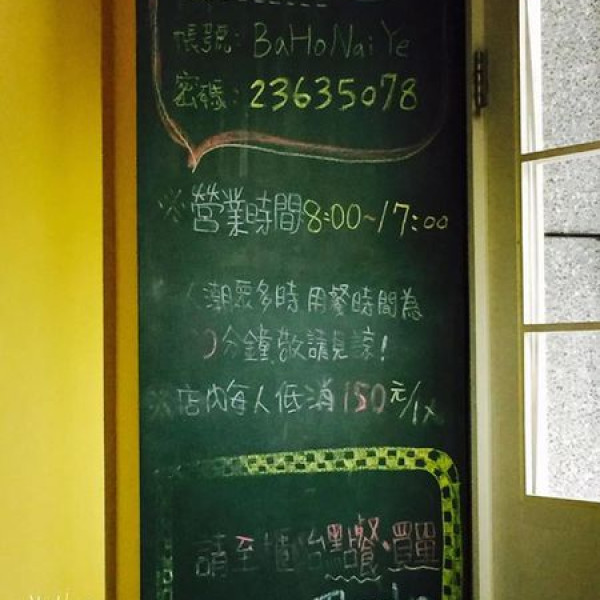 帳號: BaHoNaiYe
密碼: 23635078
※營業時間8:00~17:00
人潮眾多時用餐時間為
0分鐘敬請見諒!
※店內每人低消150元/1人
請至櫃台點餐、買單